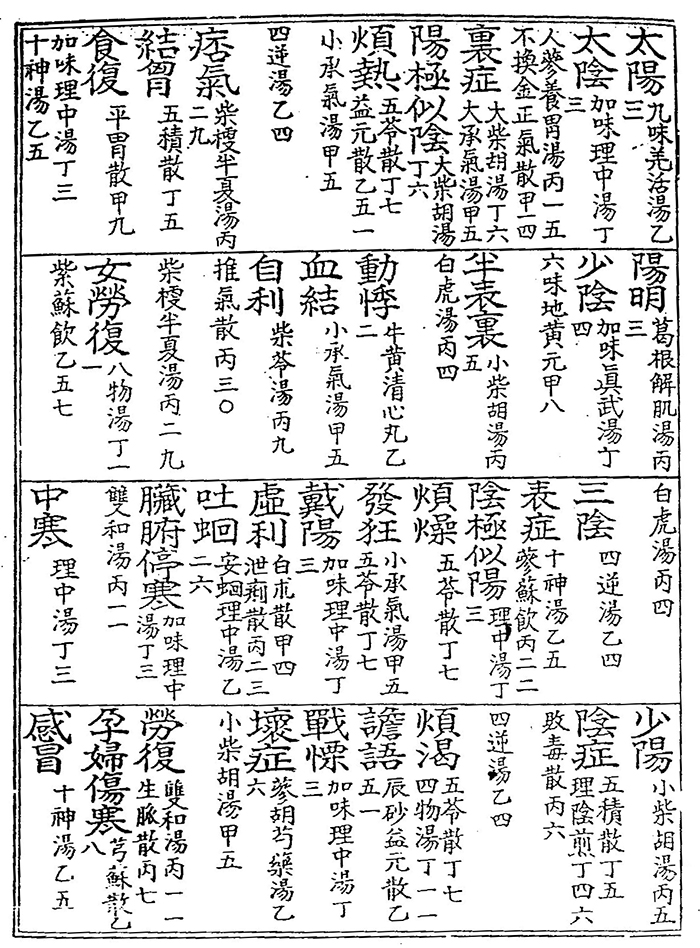 太陽 九味羌活湯乙三
太陰 加味理中湯丁三
人蔘養胃湯丙一五
不換金正氣散甲一四
裏症 大柴胡湯丁六
大承氣湯甲五
陽極似陰 大柴胡湯丁六
煩熱 五苓散丁七
益元散乙五一
小承氣湯甲五
四逆湯乙四
痞氣 柴梗半夏湯丙二九
結胷 五積散丁五
食復 平胃散甲九
加味理中湯丁三
十神湯乙五
陽明 葛根解肌湯丙三
少陰 加味眞武湯丁四
六味地黄元甲八
半表裏 小柴胡湯丙五
白虎湯丙四
動悸 牛黄清心丸乙二
血結 小承氣湯甲五
自利 柴苓湯丙九
推氣散丙三〇
柴梗半夏湯丙二九
女勞復 八物湯丁一一
紫蘇飮乙五七
白虎湯丙四
三陰 四逆湯乙四
表症 十神湯乙五
蔘蘇飮丙二二
陰極似陽 理中湯丁三
煩燥 五苓散丁七
發狂 小承氣湯甲五
五苓散丁七
戴陽 加味理中湯丁三
虛利 白朮散甲四
泄痢散丙二三
吐蛔 安蛔理中湯乙二六
臟腑停寒 加味理中湯丁三
雙和湯丙一一
中寒 理中湯丁三
少陽 小柴胡湯丙五
陰症 五積散丁五
理陰煎丁四六
敗毒散丙六
四逆湯乙四
煩渴 五苓散丁七
四物湯丁一一
譫語 辰砂益元散乙五一
戰慄 加味理中湯丁三
壞症 蔘胡芍藥湯乙六
小柴胡湯甲五
勞復 雙和湯丙一一
生脈散丙七
孕婦傷寒 芎蘇散乙八
感冒 十神湯乙五